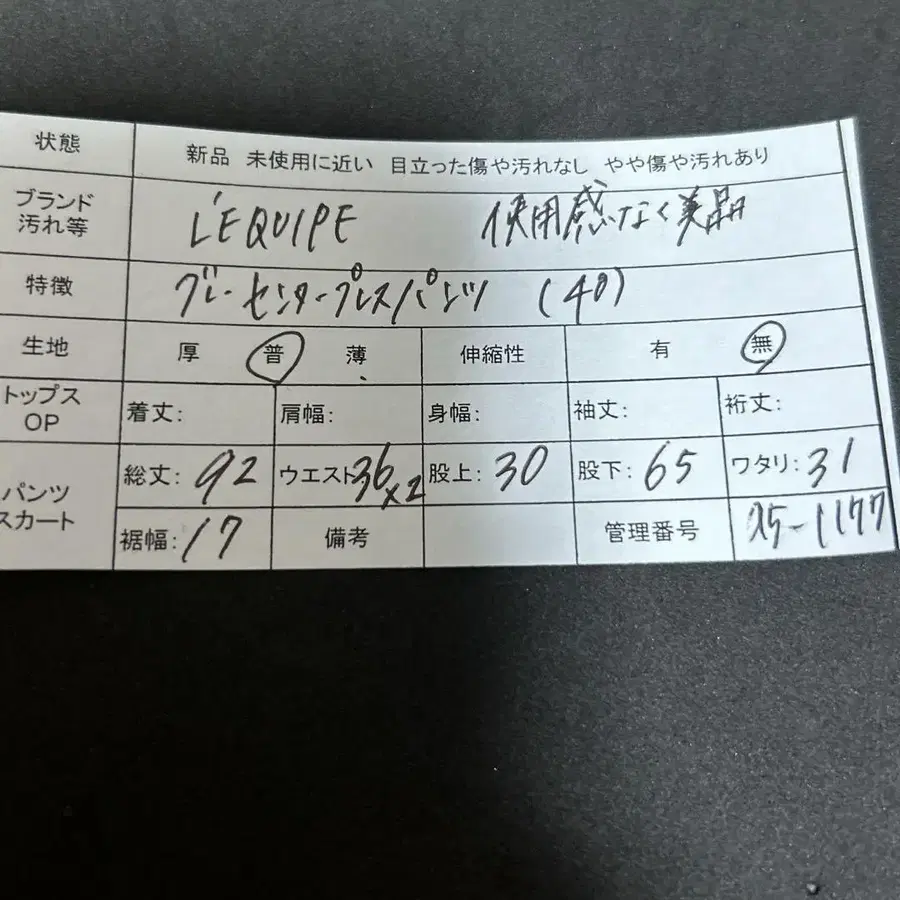 状態 新品 未使用に近い 目立った傷や汚れなし やや傷や汚れあり
ブランド 汚れ等 L'EQUIPE 使用感なく美品
特徴 グレーセンタープレスパンツ (40)
生地 厚 普 薄 伸縮性 有 無
トップス OP 着丈: 肩幅: 身幅: 袖丈: 裄丈:
パンツ スカート 総丈: 92 ウエスト 36×2 股上: 30 股下: 65 ワタリ: 31
裾幅: 17 備考 管理番号 25-1177